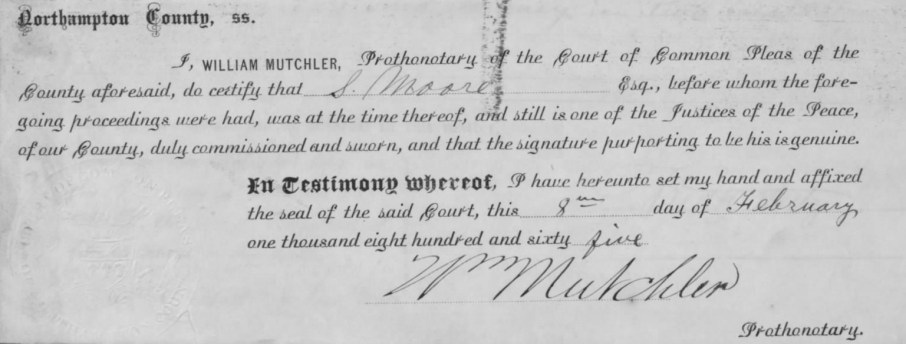 Northampton County, ss.
I, WILLIAM MUTCHLER, Prothonotary of the Court of Common Pleas of the
County aforesaid, do certify that S. Moore Esq., before whom the fore-
going proceedings were had, was at the time thereof, and still is one of the Justices of the Peace,
of our County, duly commissioned and sworn, and that the signature purporting to be his is genuine.
In Testimony whereof, I have hereunto set my hand and affixed
the seal of the said Court, this 8th day of February
one thousand eight hundred and sixty five
Wm Mutchler
Prothonotary.